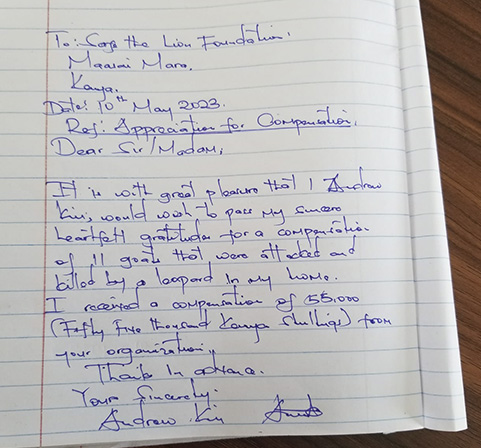 To: Sarge the Lion Foundation,
Maasai Mara,
Kenya.
Date: 10th May 2023.
Ref: Appreciation for Compensation,
Dear Sir/Madam,
It is with great pleasure that I Andrew
Kin, would wish to pass my sincere
heartfelt gratitudes for a compensation
of 11 goats that were attacked and
killed by a leopard in my home.
I received a compensation of 55,000
(Fifty Five thousand Kenya Shillings) from
your organization,
Thanks In advance.
Yours Sincerely.
Andrew Kin